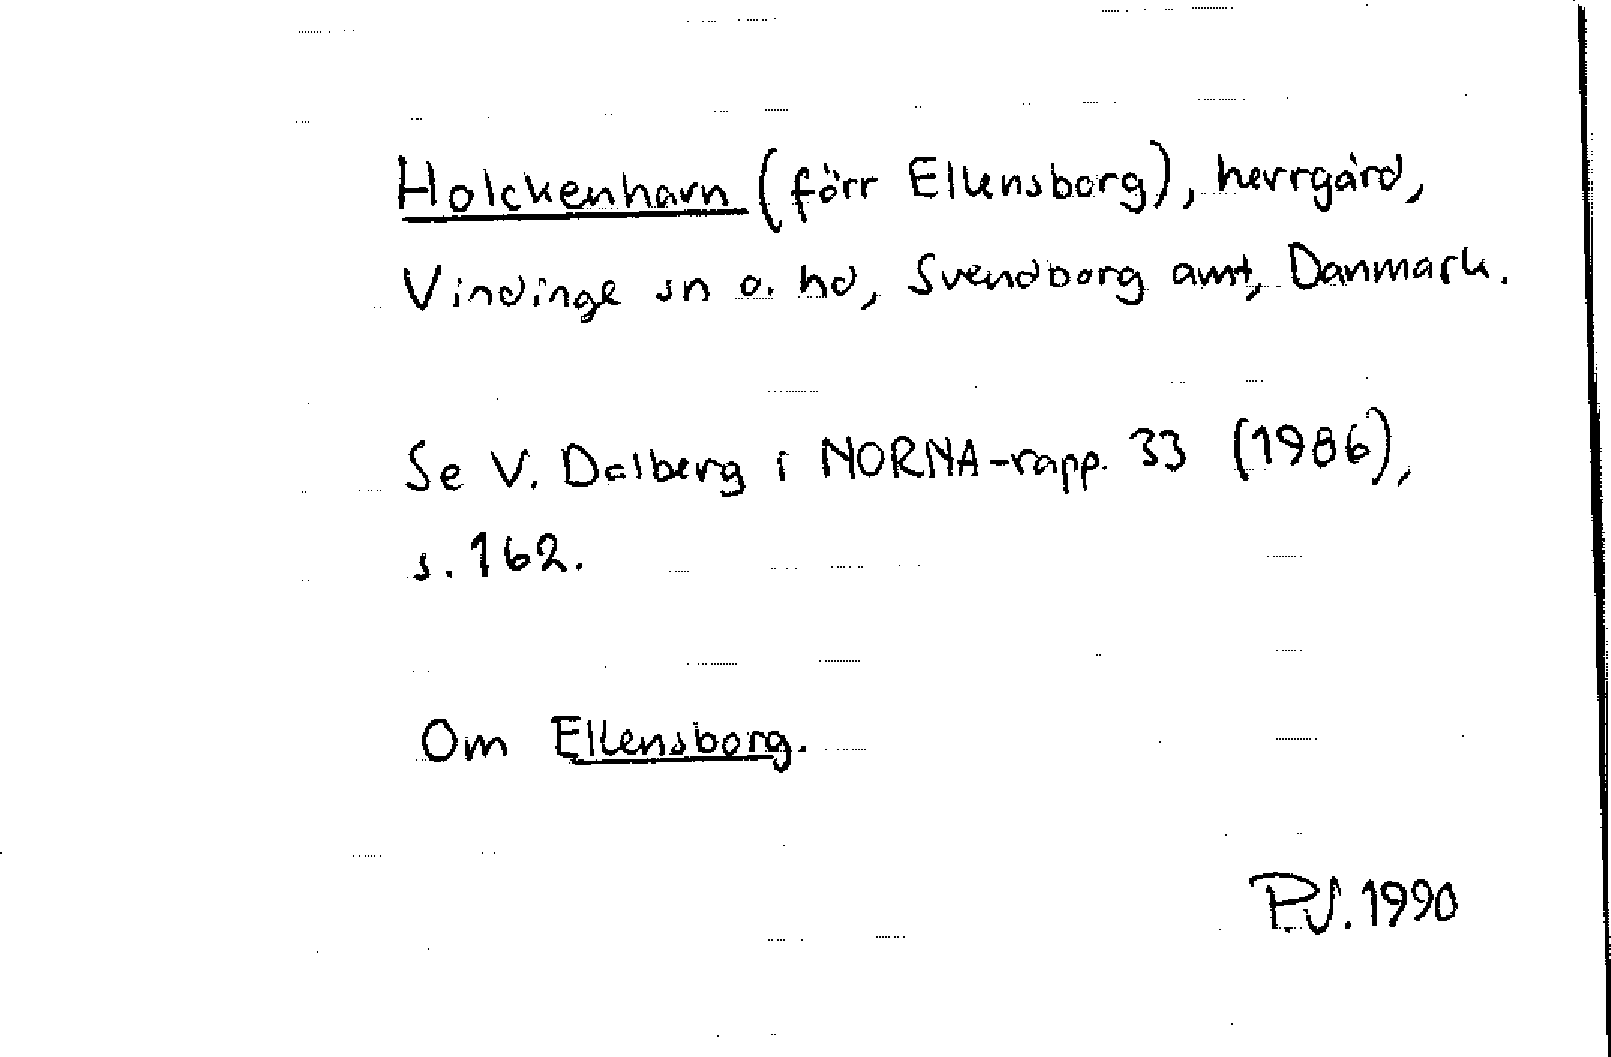 Holckenhavn (förr Ellensborg), herrgård,
Vindinge sn o. hd, Svendborg amt, Danmark.
Se V. Dalberg i NORNA-rapp. 33 (1986),
s. 162.
Om Ellensborg.
P.J. 1990